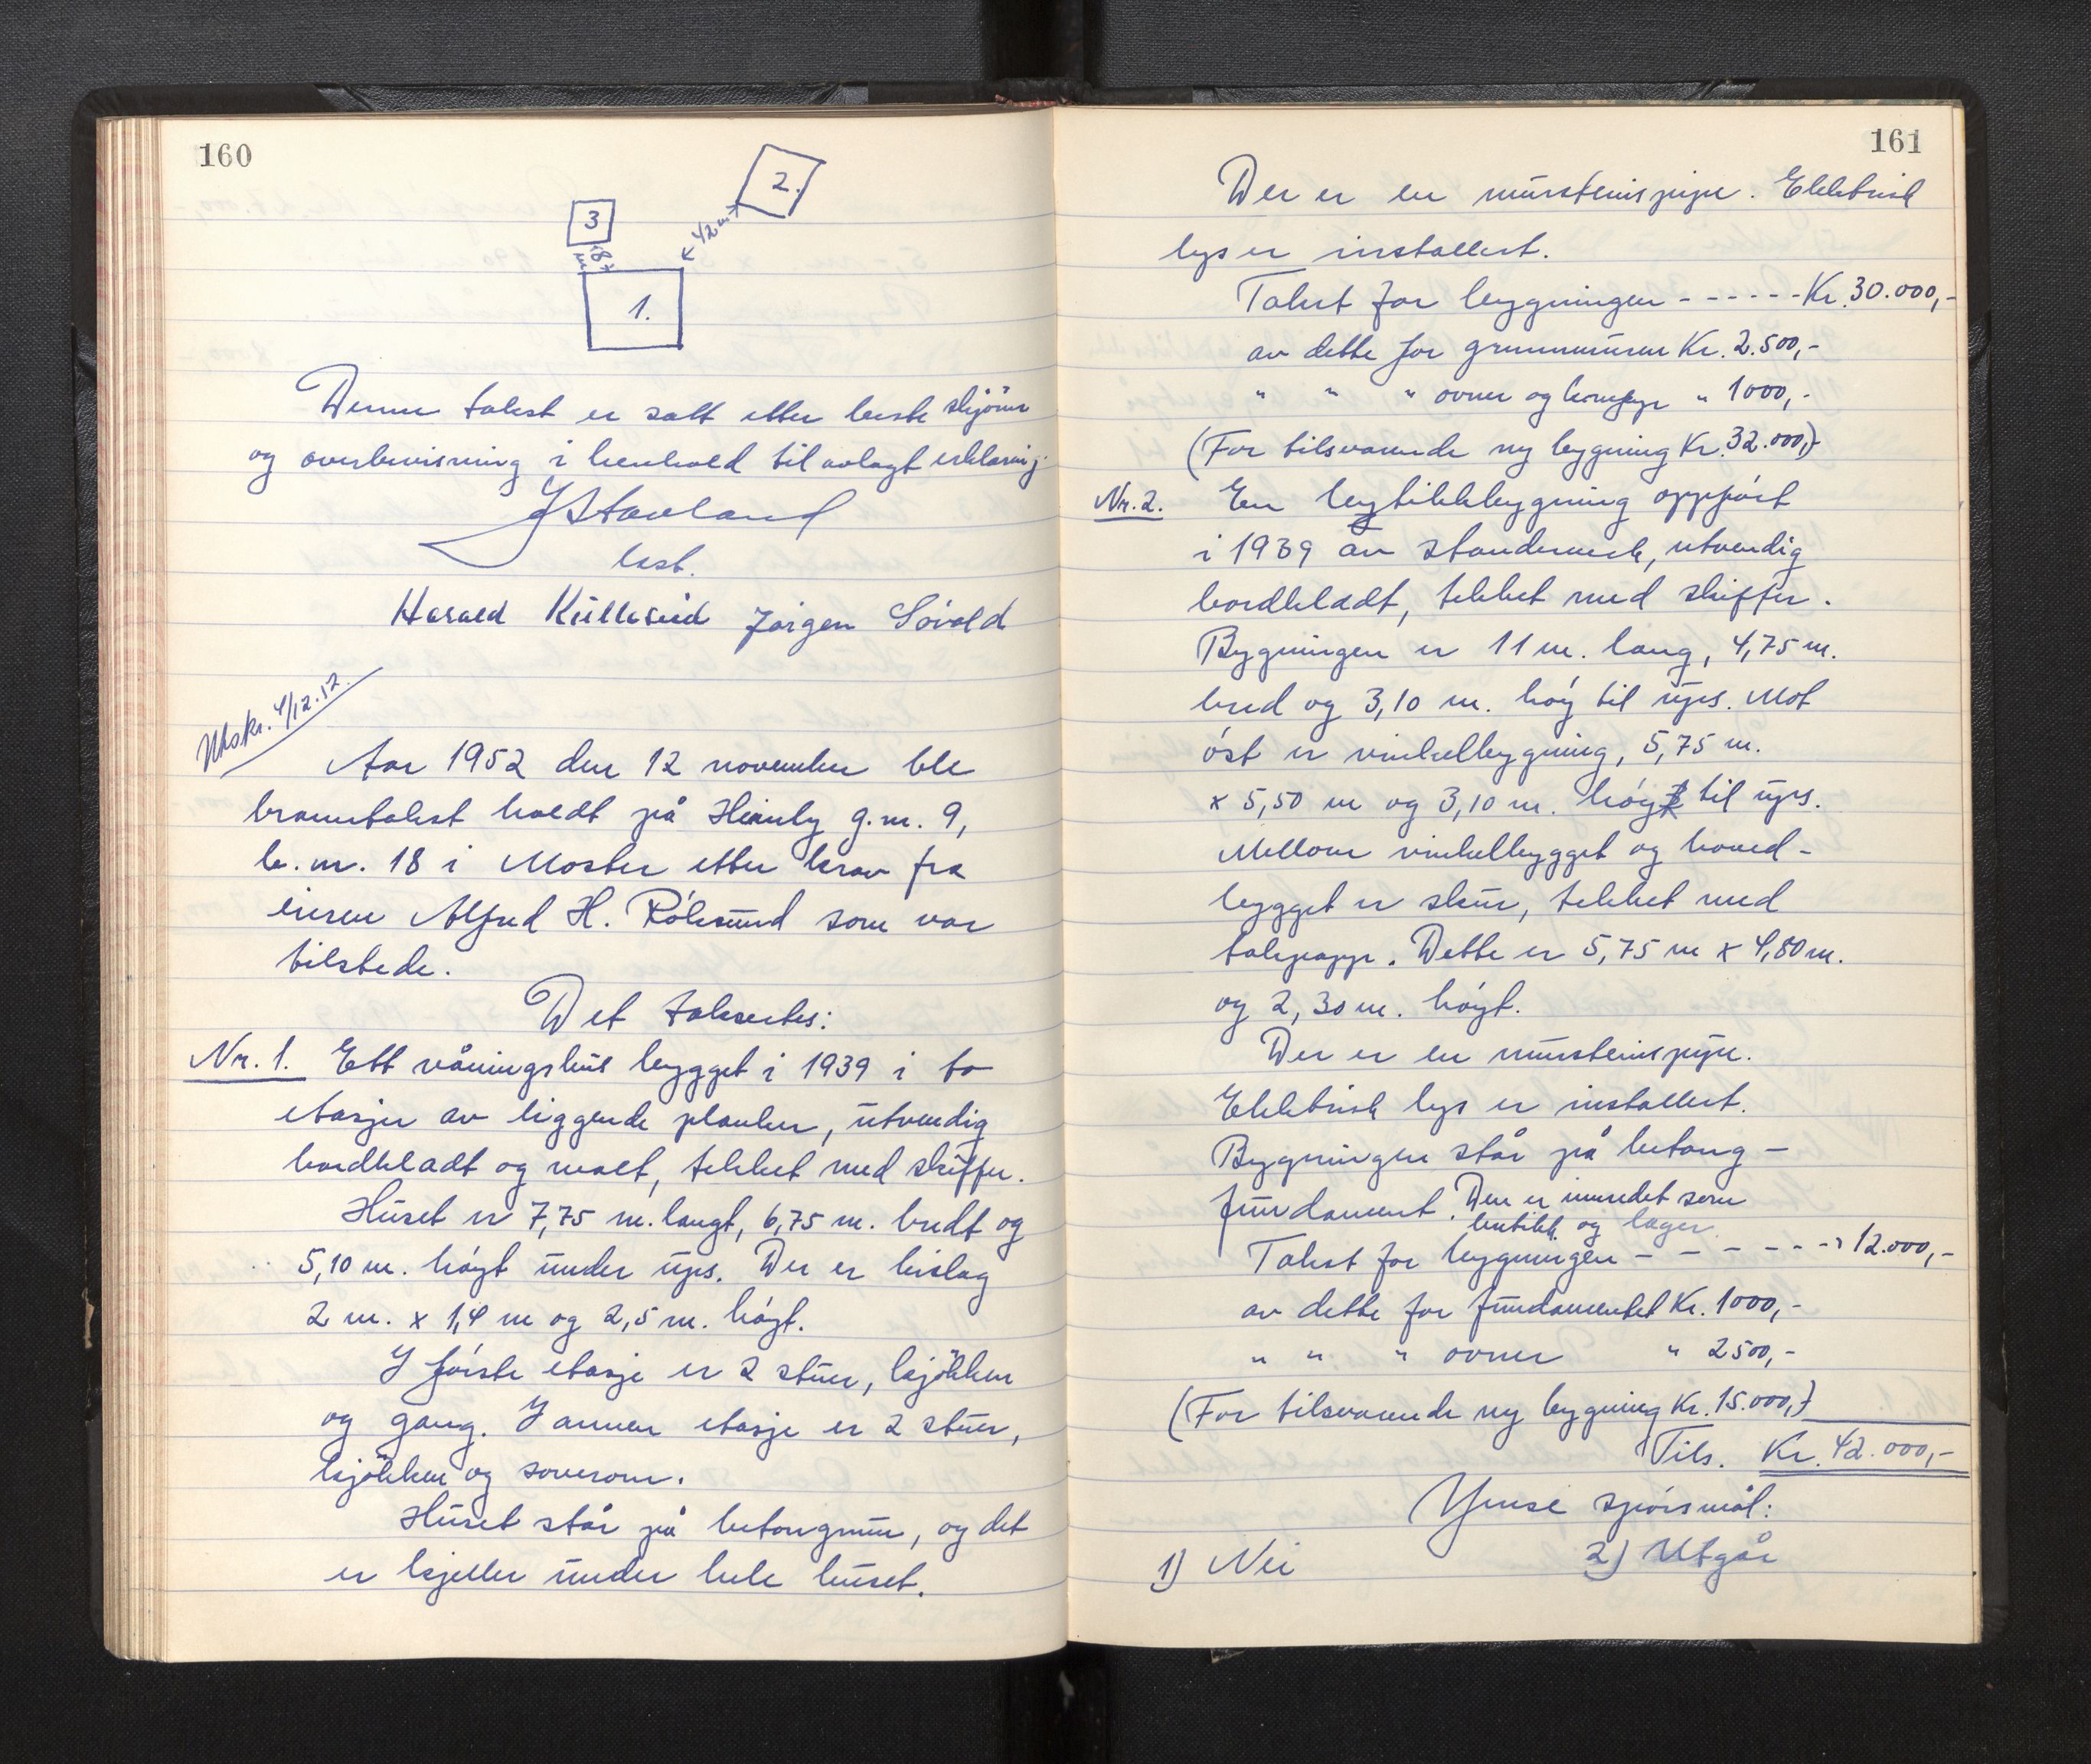 160
2.
3
42 m
18 m
1.
Denne takst er satt etter beste skjönn
og overbevisning i henhold til avlagt erklæring.
J Stavland
lest.
Harald Kulleseid Jørgen Søvold
Utskr. 4/12.52.
Aar 1952 den 12 november ble
branntakst holdt på Heimly g.nr. 9,
b.nr. 18 i Moster etter krav fra
eieren Alfred H. Röksund som var
tilstede.
Det takseres:
Nr. 1. Ett våningshus bygget i 1939 i to
etasjer av liggende planker, utvendig
bordkledt og malt, tekket med skiffer.
Huset er 7,75 m. langt, 6,75 m. bredt og
5,10 m. høgt under ups. Der er bislag
2 m. x 1,4 m og 2,5 m. høgt.
I første etasje er 2 stuer, kjøkken
og gang. I annen etasje er 2 stuer,
kjøkken og soverom.
Huset står på betongmur, og det
er kjeller under hele huset.
161
Der er en mursteinspipe. Elektrisk
lys er installert.
Takst for bygningen - - - - - - Kr. 30.000,-
av dette for grunnmuren Kr. 2.500,-
" " " ovner og komfyr " 1000,-
(For tilsvarende ny bygning Kr. 32.000,-)
Nr. 2. En butikkbygning oppført
i 1939 av standerverk, utvendig
bordkledt, tekket med skiffer.
Bygningen er 11 m. lang, 4,75 m.
bred og 3,10 m. høg til ups. Mot
øst er vinkelbygning, 5,75 m.
x 5,50 m og 3,10 m. høg til ups.
Mellom vinkelbygget og hoved-
bygget er skur, tekket med
takpapp. Dette er 5,75 m x 4,80 m.
og 2,30 m. høgt.
Der er en mursteinspipe.
Elektrisk lys er installert.
Bygningen står på betong-
fundament. Den er innredet som
butikk og lager.
Takst for bygningen - - - - - - " 12.000,-
av dette for fundamentet Kr. 1000,-
" " " ovner " 2500,-
(For tilsvarende ny bygning Kr. 15.000,-)
Tils. Kr. 42.000,-
Ymse spørsmål:
1) Nei 2) Utgår